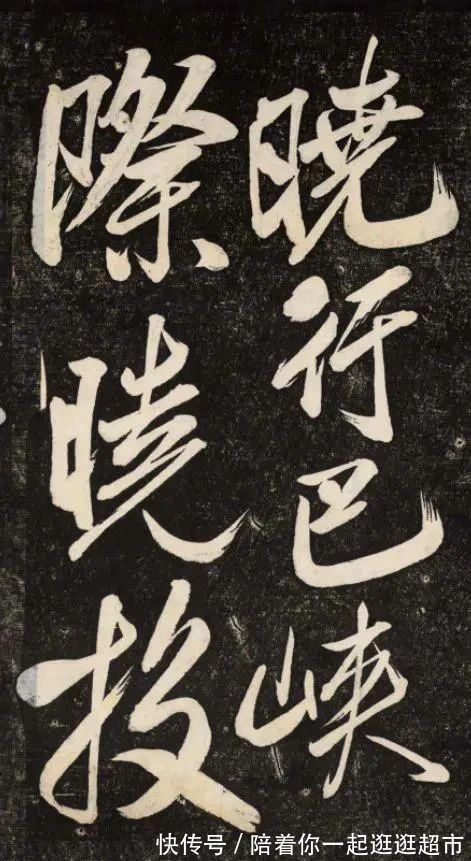 曉行巴峽
際曉投
快传号/陪着你一起逛逛超市